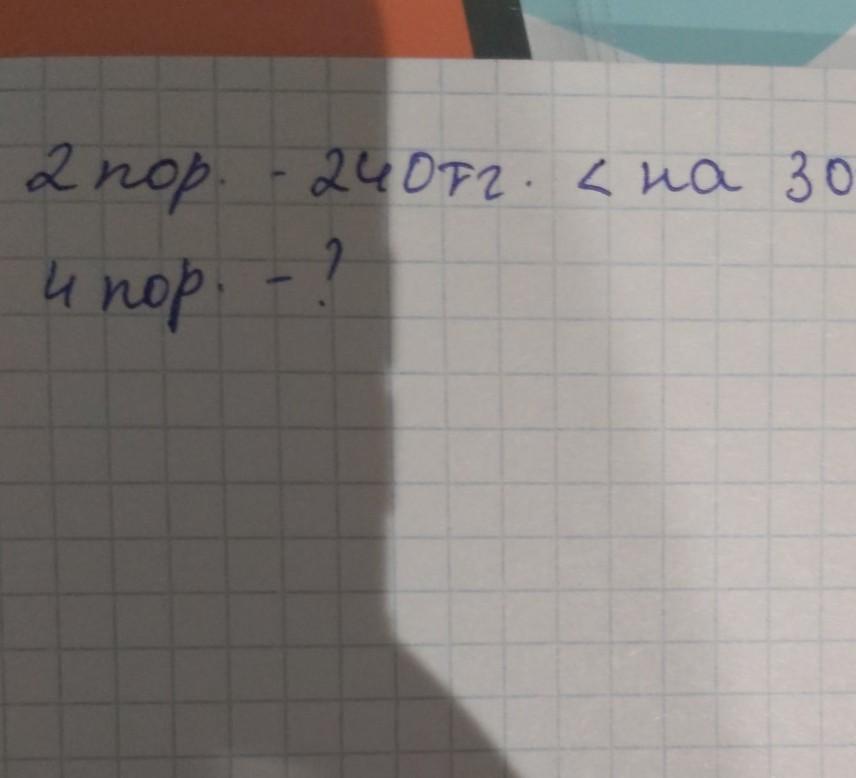 2 пор. - 240тг. < на 30
4 пор. - ?